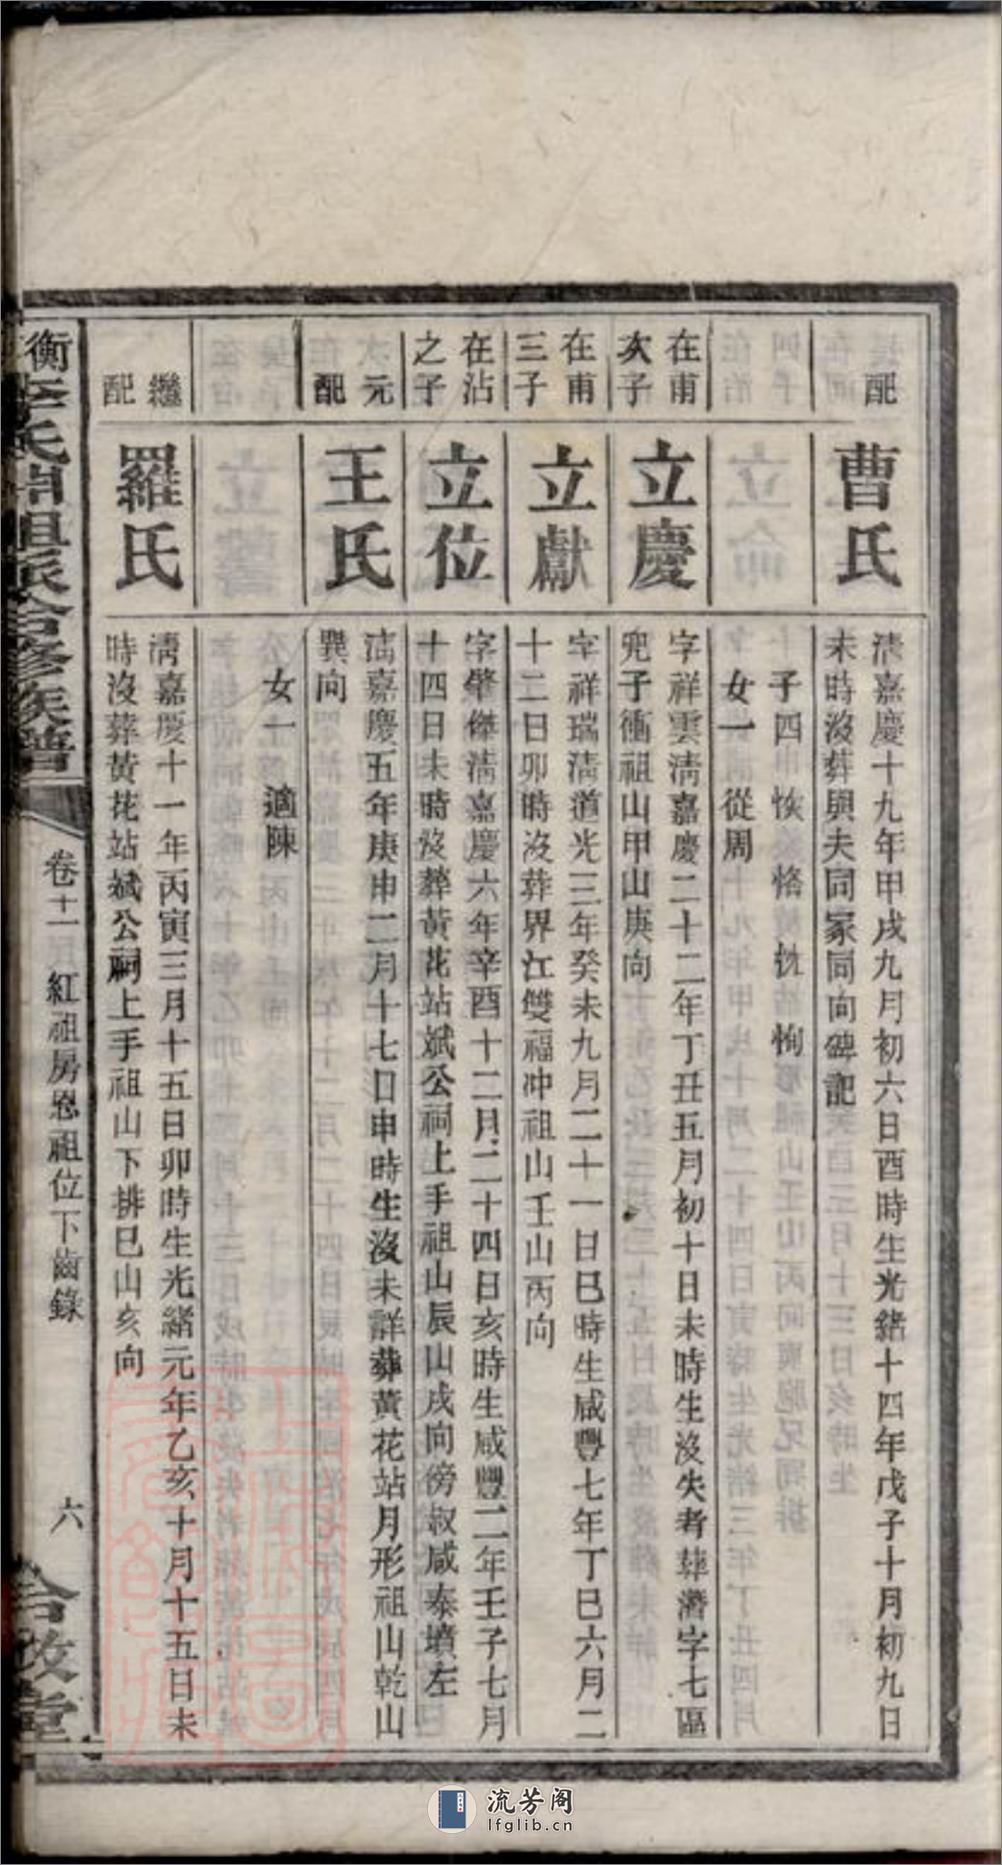 配
曹氏
清嘉慶十九年甲戌九月初六日酉時生光緒十四年戊子十月初九日
未時沒葬與夫同冢同向碑記
子四 恢 恪 恂
女一 從周
在甫
次子
立慶
字祥雲清嘉慶二十二年丁丑五月初十日未時生沒失考葬潛字七區
兜子衝祖山甲山庚向
在甫
三子
立獻
字祥瑞清道光三年癸未九月二十一日巳時生咸豐七年丁巳六月二
十二日卯時沒葬界江雙福冲祖山壬山丙向
在沾
之子
立位
字肇傑清嘉慶六年辛酉十二月二十四日亥時生咸豐二年壬子七月
十四日未時沒葬黃花站斌公祠上手祖山辰山戌向傍叔咸泰墳左
元
配
王氏
清嘉慶五年庚申二月十七日申時生沒未詳葬黃花站月形祖山乾山
巽向
女一 適陳
繼
配
羅氏
清嘉慶十一年丙寅三月十五日卯時生光緒元年乙亥十月十五日未
時沒葬黃花站斌公祠上手祖山下排巳山亥向
衡 李氏 祖派合修族譜
卷十一
紅祖房恩祖位下齒錄
六
流芳阁
lfglib.cn